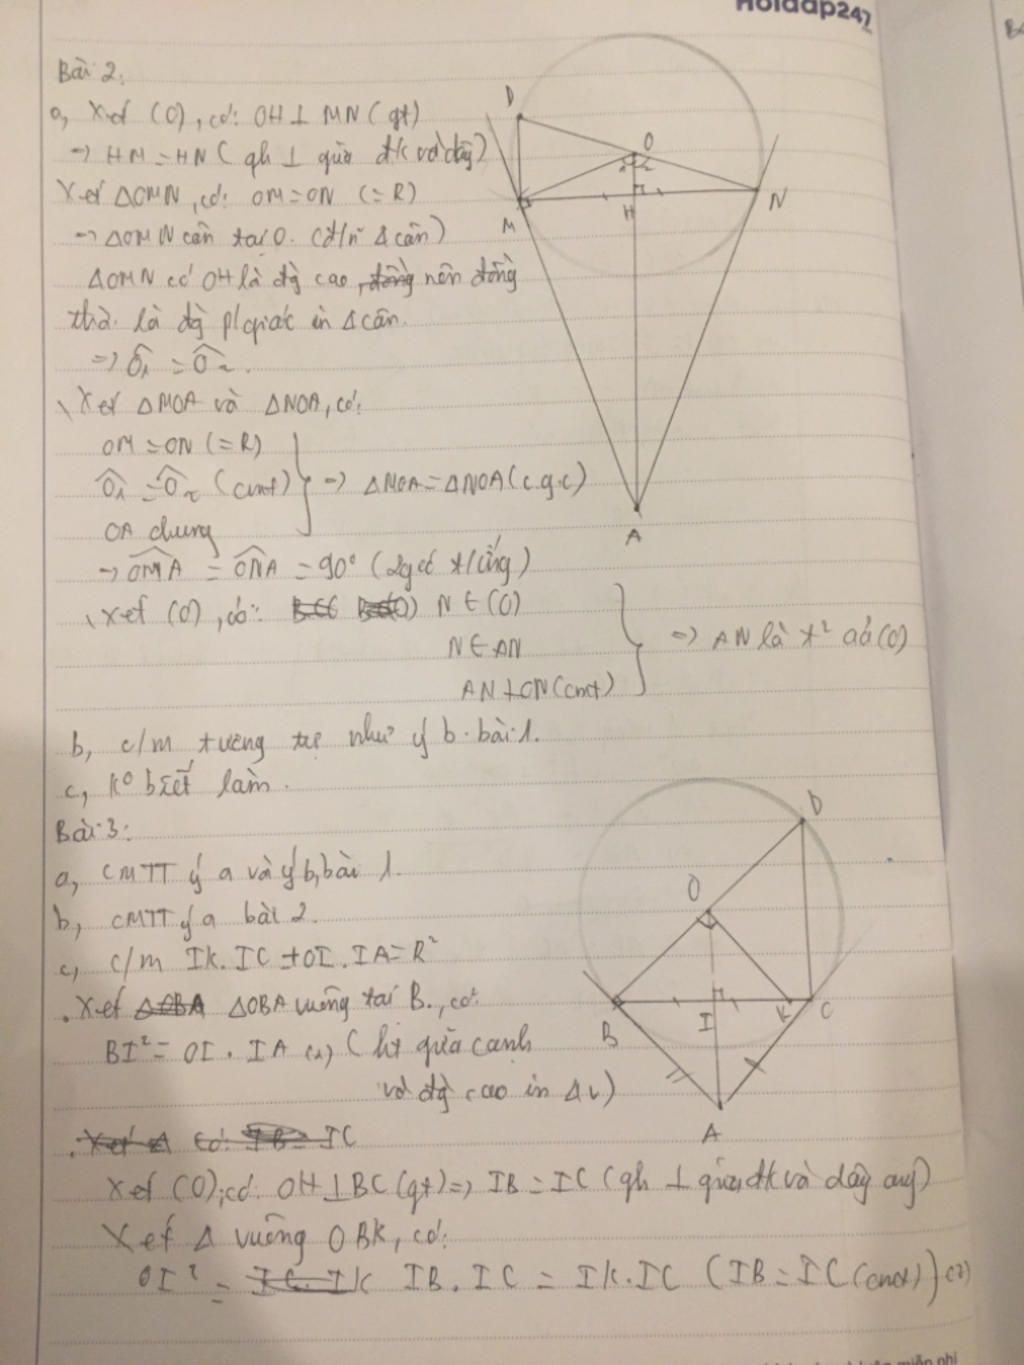 Hoidap247
Bài 2:
a, Xét (O), có: OH⊥ MN (gt)
→ HM = HN ( qh ⊥ giữa đk và dây)
Xét ΔOMN, có: OM = ON (=R)
→ ΔOMN cân tại O. (đ/n Δ cân)
ΔOMN có OH là đg cao, nên đồng
thời là đg p/giác in Δ cân.
=> Ô₁ = Ô₂.
Xét ΔMOA và ΔNOA, có:
OM = ON (=R)
Ô₁ = Ô₂ (cmt) => ΔMOA = ΔNOA (c.g.c)
OA chung
→ OMA = ONA = 90° (2góc t/ứng)
Xét (O), có: N ∈ (O)
N ∈ AN => AN là t² củả (O)
AN ⊥ ON (cmt)
b, c/m tương tự như ý b bài 1.
c, k° biết làm.
Bài 3:
a, CMTT ý a và ý b, bài 1.
b, CMTT ý a bài 2.
c, c/m IK. IC + OI. IA = R²
. Xét ΔOBA ΔOBA vuông tại B., có:
BI² = OI . IA (1) ( ht giữa cạnh
và đg cao in Δv)
. Xét Δ có: IB = IC
Xét (O), có: OH ⊥ BC (gt) => IB = IC (qh ⊥ giữa đk và dây cung)
Xét Δ vuông OBK, có:
OI² = IC. IK IB. IC = IK. IC (IB = IC (cmt)) (2)
D
O
1 2
M
H
N
A
D
O
B
I
K
C
A
miễn phí